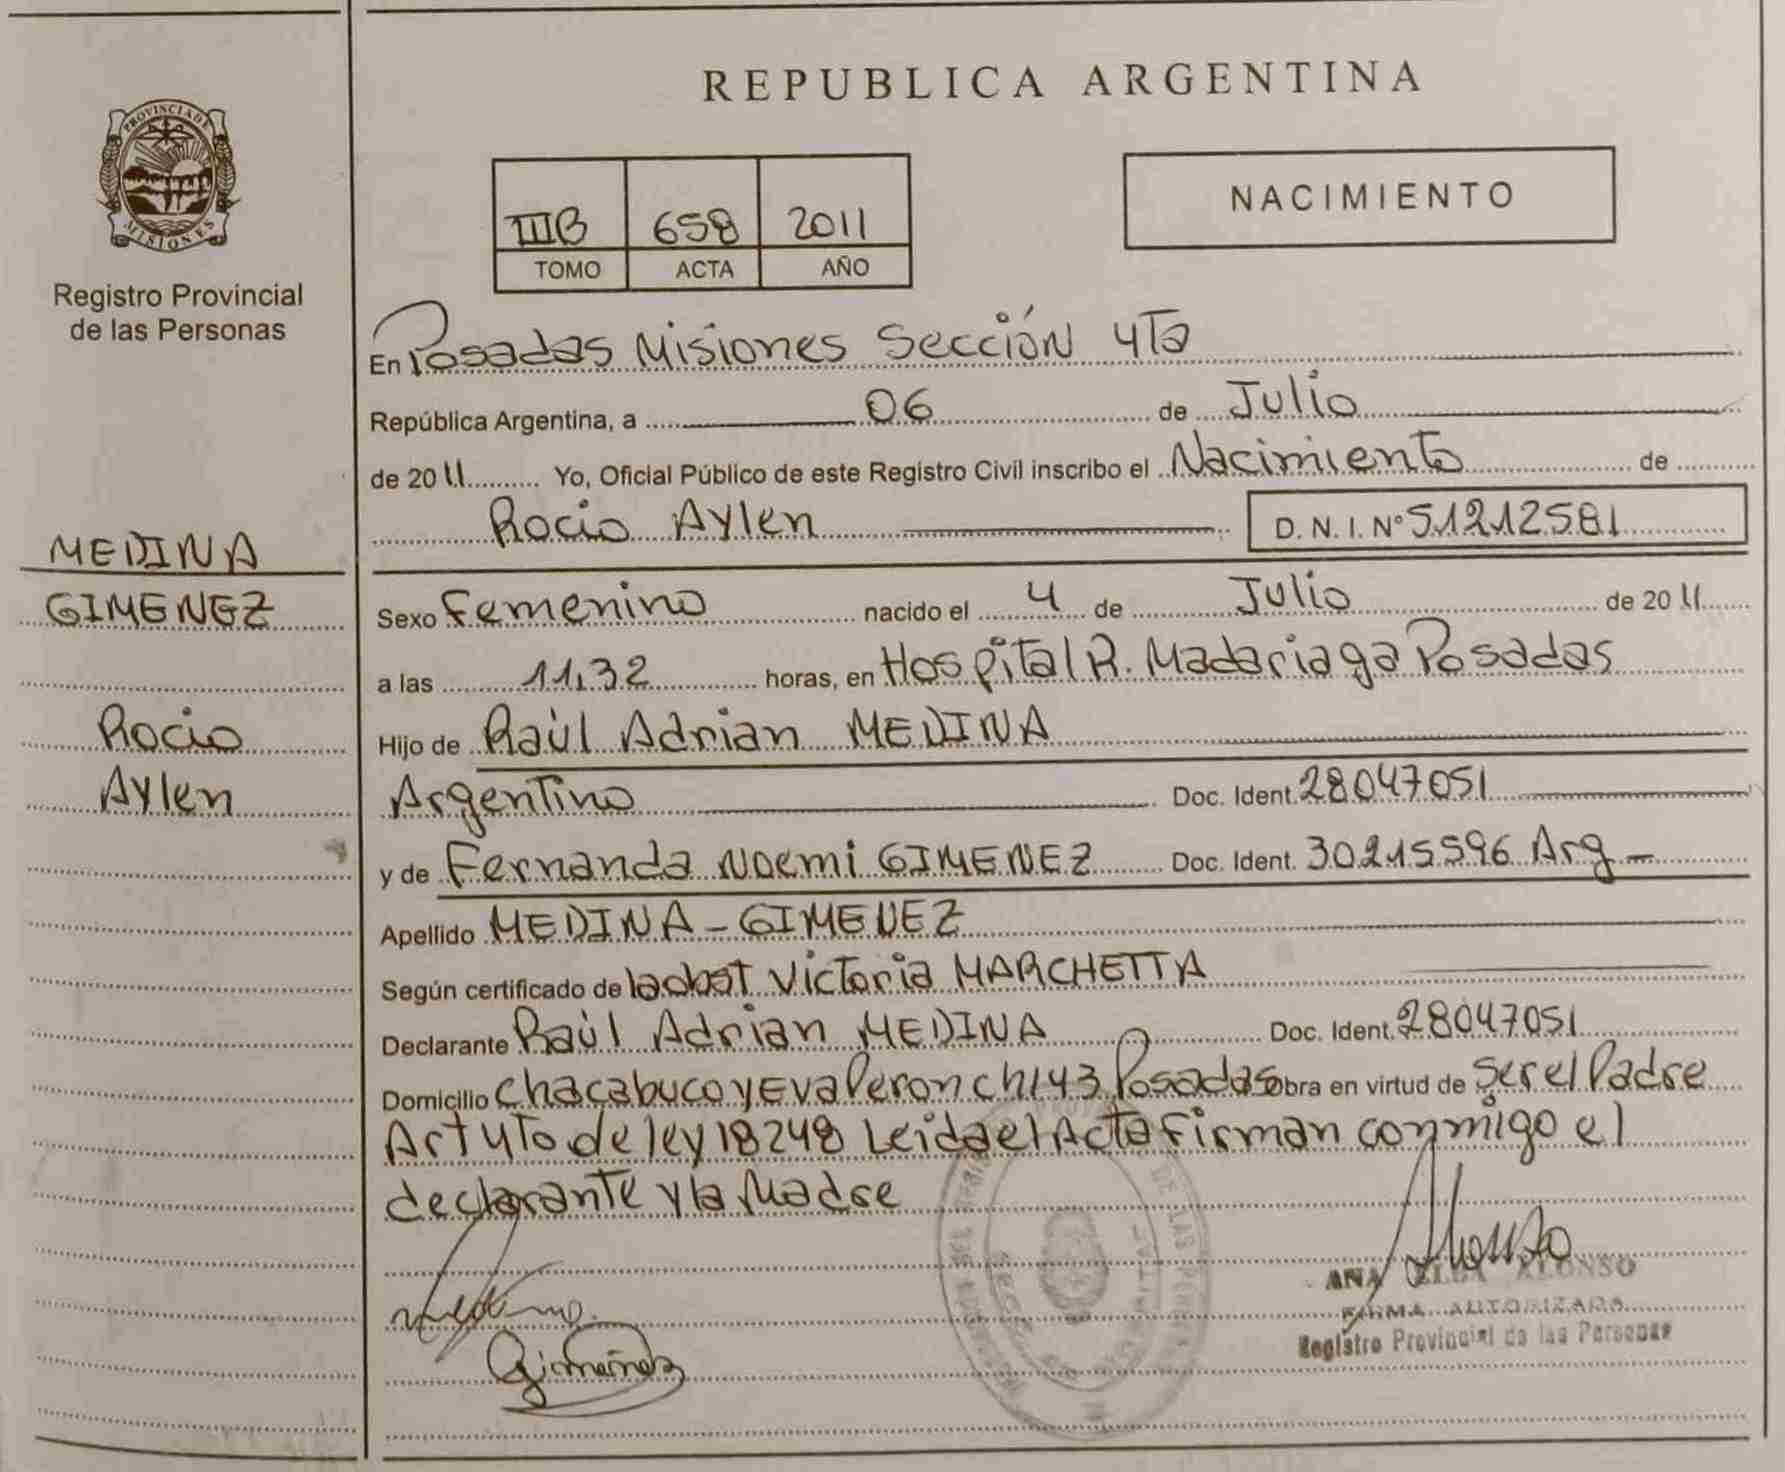 PROVINCIA DE
MISIONES
Registro Provincial
de las Personas
MEDINA
GIMENEZ
Rocio
Aylen
REPUBLICA ARGENTINA
IIIB 658 2011
TOMO ACTA AÑO
NACIMIENTO
En Posadas Misiones Sección 4Ta
República Argentina, a 06 de Julio
de 2011 Yo, Oficial Público de este Registro Civil inscribo el Nacimiento de
Rocio Aylen D. N. I. N° 51212581
Sexo Femenino nacido el 4 de Julio de 2011
a las 11,32 horas, en Hospital R. Madariaga Posadas
Hijo de Raúl Adrian MEDINA
Argentino Doc. Ident. 28047051
y de Fernanda Noemi GIMENEZ Doc. Ident. 30215596 Arg
Apellido MEDINA - GIMENEZ
Según certificado de la obst Victoria MARCHETTA
Declarante Raúl Adrian MEDINA Doc. Ident. 28047051
Domicilio Chacabuco y Eva Peron ch 143 Posadas obra en virtud de Ser el Padre
Art 4To de ley 18248 Leida el Acta Firman conmigo el
declarante y la Madre
ANA ELBA ALONSO
FIRMA AUTORIZADA
Registro Provincial de las Personas
Gimenez